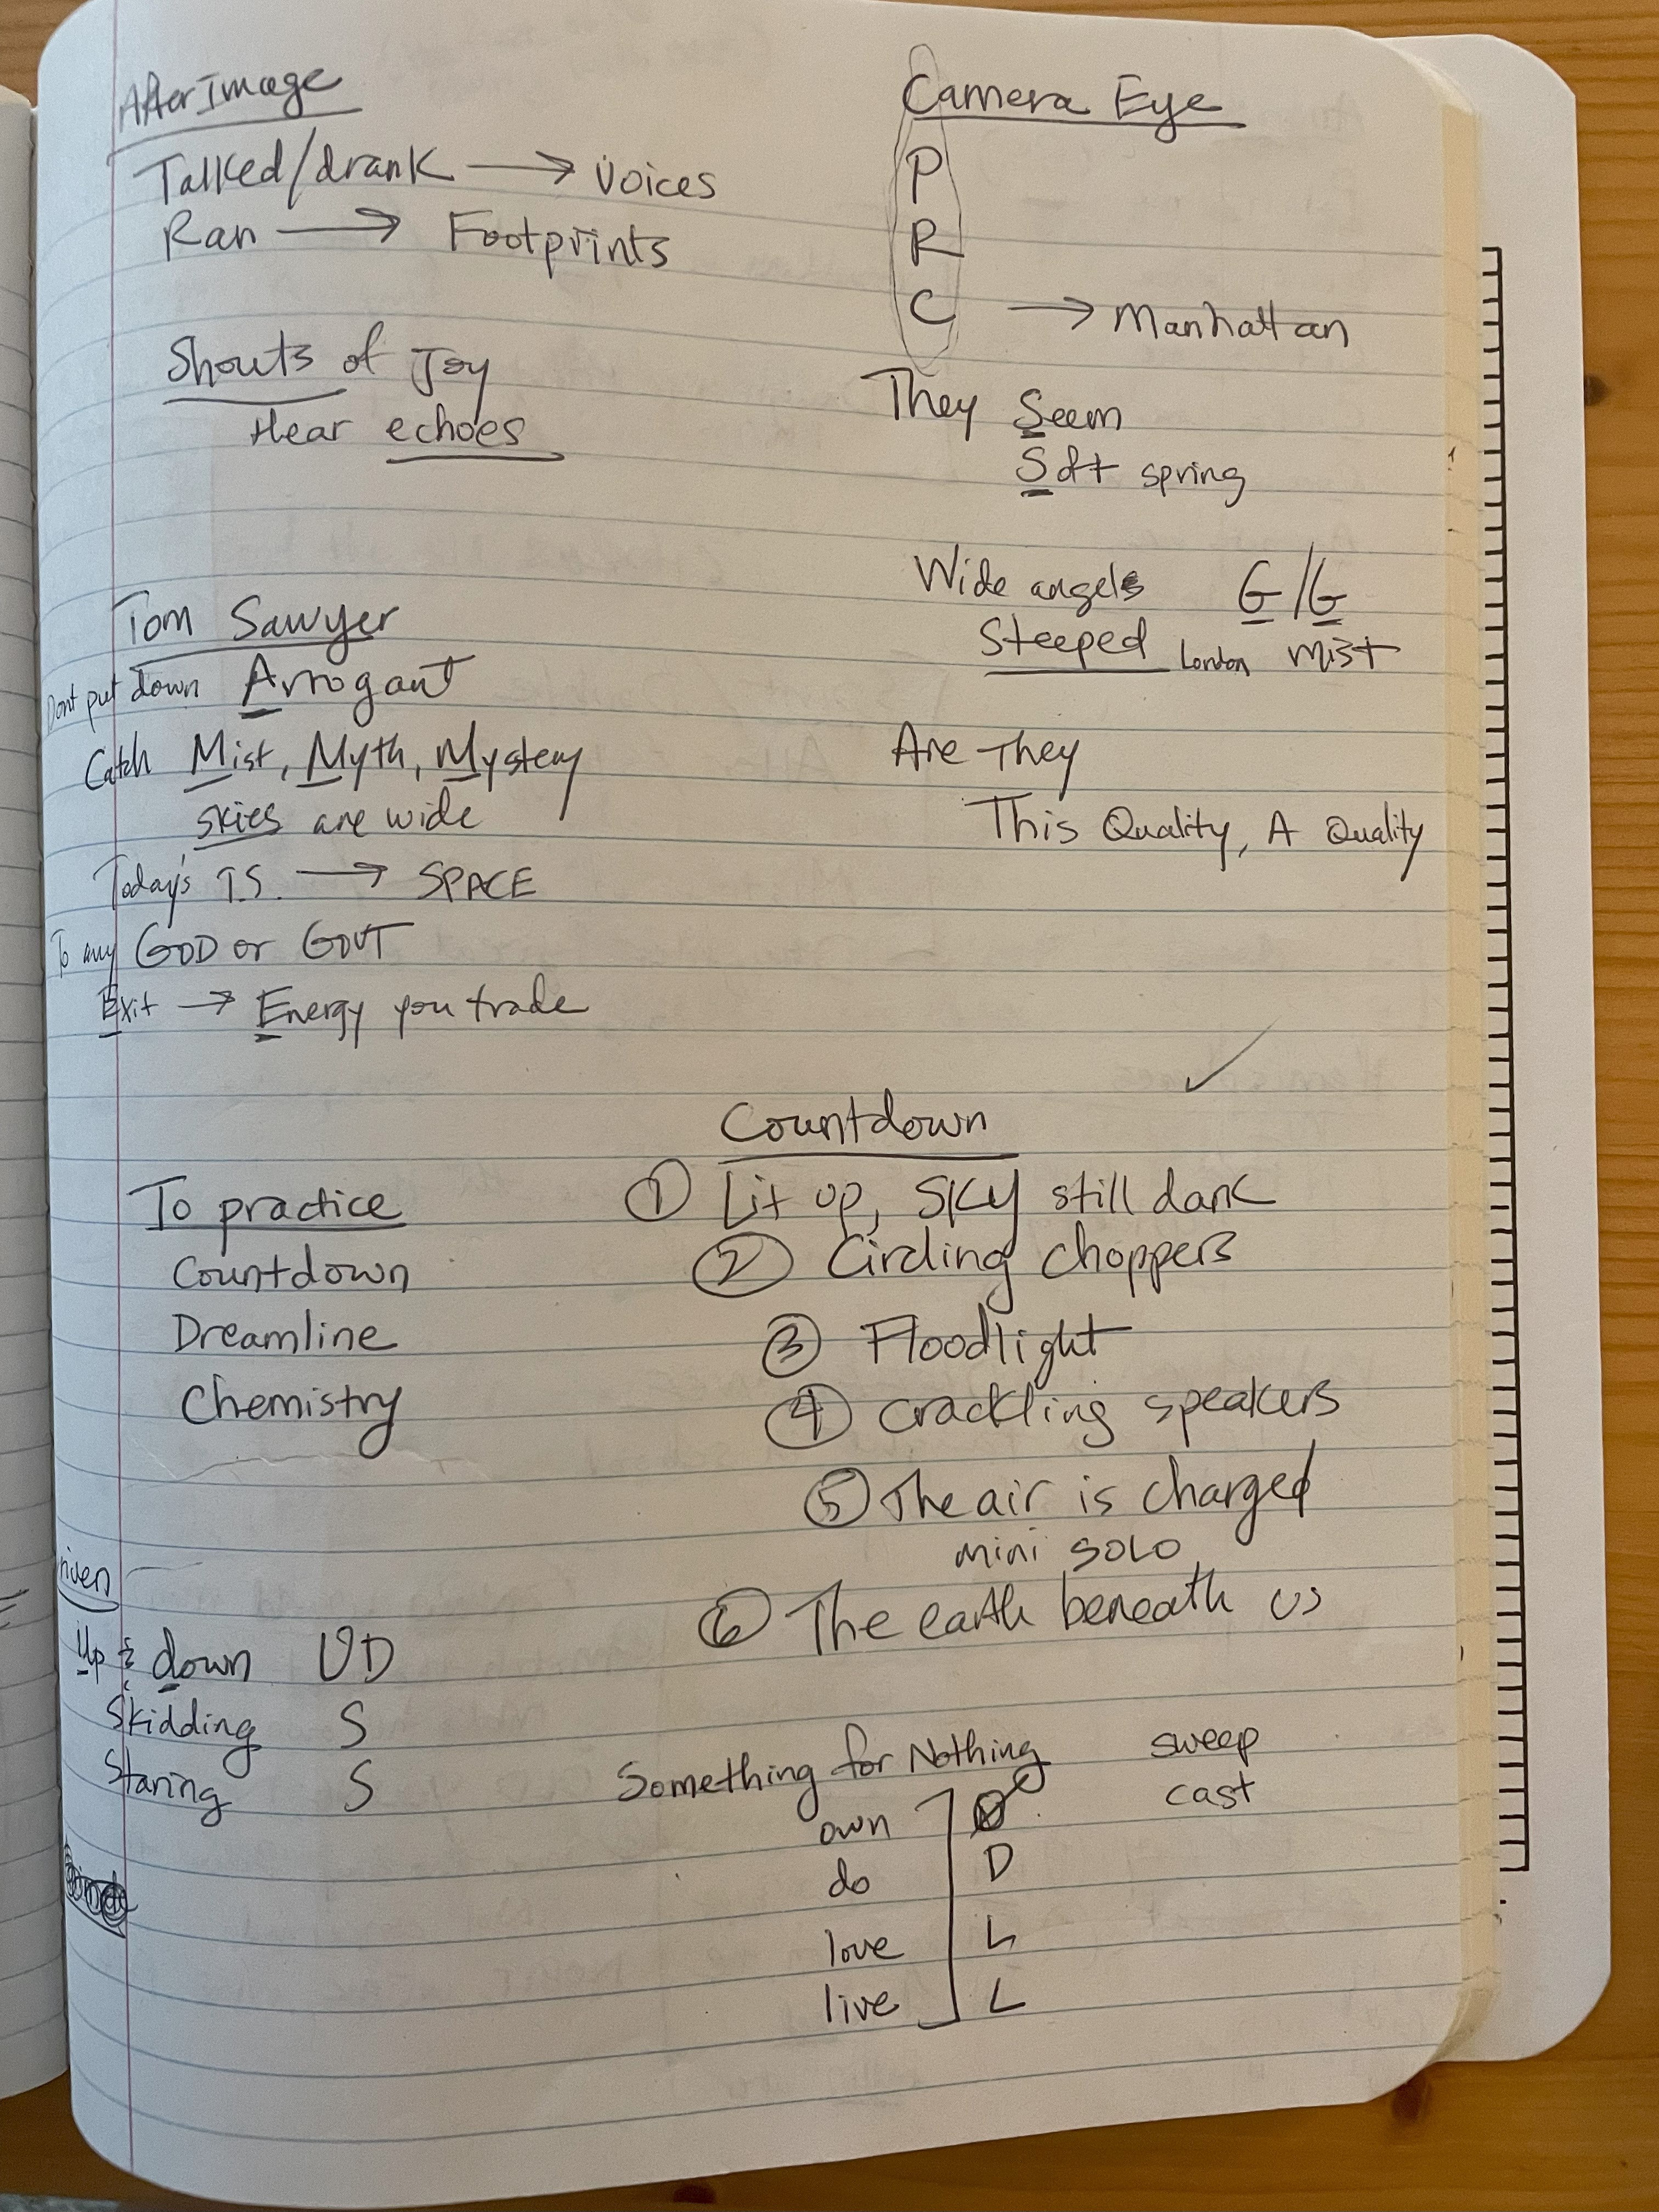 AfterImage
Talked/drank → Voices
Ran → Footprints
Shouts of Joy
Hear echoes
Camera Eye
P
R
C → Manhattan
They Seem
Soft spring
Wide angels G/G
Steeped London Mist
Are They
This Quality, A Quality
Tom Sawyer
Dont put down Arrogant
Catch Mist, Myth, Mystery
skies are wide
Today's T.S. → SPACE
To any GOD or GOVT
Exit → Energy you trade
✓
Countdown
① Lit up, SKY still dark
② Circling choppers
③ Floodlight
④ crackling speakers
⑤ The air is charged
mini SOLO
⑥ The earth beneath us
To practice
Countdown
Dreamline
Chemistry
riven
Up & down UD
Skidding S
Staring S
Something for Nothing
own
do D
love L
live L
sweep
cast